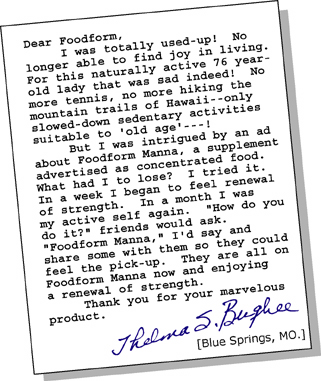 Dear Foodform,
I was totally used-up!  No
longer able to find joy in living.
For this naturally active 76 year-
old lady that was sad indeed!  No
more tennis, no more hiking the
mountain trails of Hawaii--only
slowed-down sedentary activities
suitable to 'old age'---!
But I was intrigued by an ad
about Foodform Manna, a supplement
advertised as concentrated food.
What had I to lose?  I tried it.
In a week I began to feel renewal
of strength.  In a month I was
my active self again.  "How do you
do it?" friends would ask.
"Foodform Manna," I'd say and
share some with them so they could
feel the pick-up.  They are all on
Foodform Manna now and enjoying
a renewal of strength.
Thank you for your marvelous
product.
Thelma S. Bughee
[Blue Springs, MO.]